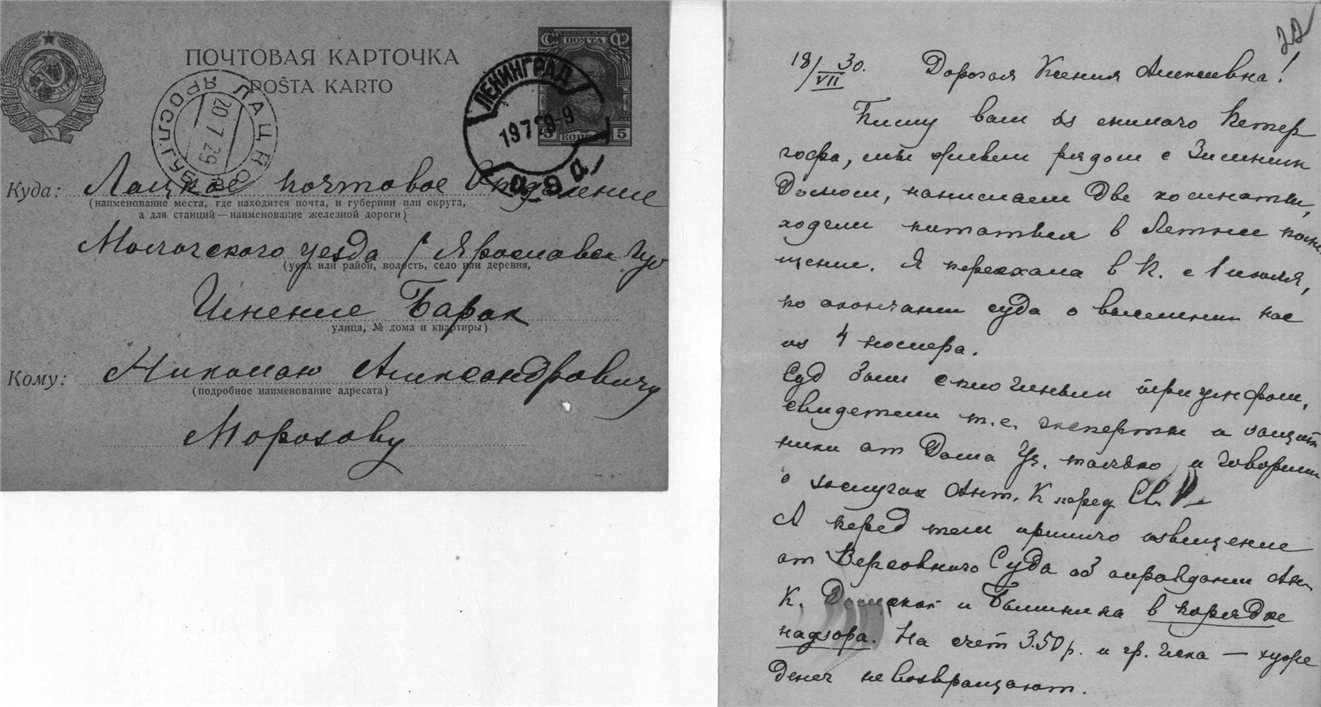 ПОЧТОВАЯ КАРТОЧКА
POŜTA KARTO
С ПОЧТА Ф
5 КОПЕЕК 5
ЛЕНИНГРАД
19 7 29-9
ЛАЦКОЕ
ЯРОСЛ. ГУБ.
20 7 29
Куда: Лацкое почтовое Отделение
(наименование места, где находится почта, и губернии или округа,
а для станций — наименование железной дороги)
Мологского уезда / Ярославск Гу
(уезд или район, волость, село или деревня,
Имение Борок
улица, № дома и квартиры)
Кому: Николаю Александровичу
(подробное наименование адресата)
Морозову
22
18/VII 30. Дорогая Ксения Алексеевна!
Пишу вам из Петер
гофа, мы живем рядом с Зимним
Домом, нанимаем две комнаты,
ходим питаться в Летнее поме
щение. Я переехала в К. с 1 июля,
по окончании суда о выселении нас
из 4 номера.
Суд был сплошным триумфом,
свидетели т.е. эксперты и защит
ники от Дома Уч. только и говорили
о заслугах Ант. К перед
А перед тем пришло извещение
от Верховного Суда об оправдании Ан.
К, и в порядке
надзора. На счет 3.50 р. и гр. иска — хуже
денег не возвращают.